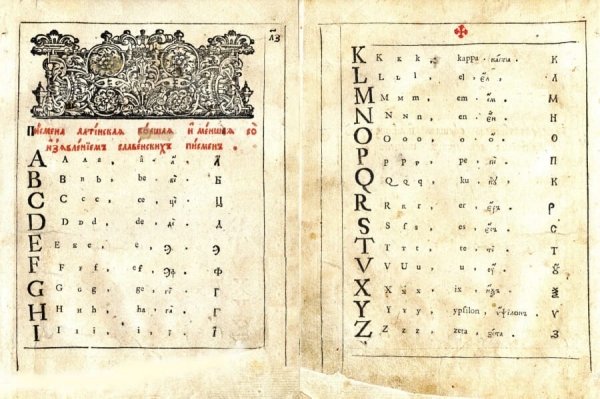 л҃з
Писмена латѳнская вѧщшая и меншая со
изѧвленїемъ славенскихъ писменъ .
A A a a , a . а҆ . А
B B b b , be . бе . Б
C C c c , ce , це , Ц
D D d d , de , де , Д
E E e e , e . э . Э
F F f f , ef , эф , Ф
G G g g , ge , ге , Г
H H h h , ha , га , Г
I I i i , i , ї , Ї
K K k k , kappa . каппа . К
L L l l , el . ел . Л
M M m m , em . ем . М
N N n n , en . ен . Н
O O o o , o . о . О
P P p p , pe . пе . П
Q Q q q , ku . ку . К
R R r r , er . еръ . Р
S S ſ s , es . есъ . С
T T t t , te . те . Т
V V U u , u . у . Ꙋ
X X x x , ix . иѯъ . Ѯ
Y Y y y , ypsilon . ѵпсїлонъ . Ѵ
Z Z z z , zeta . зета . З